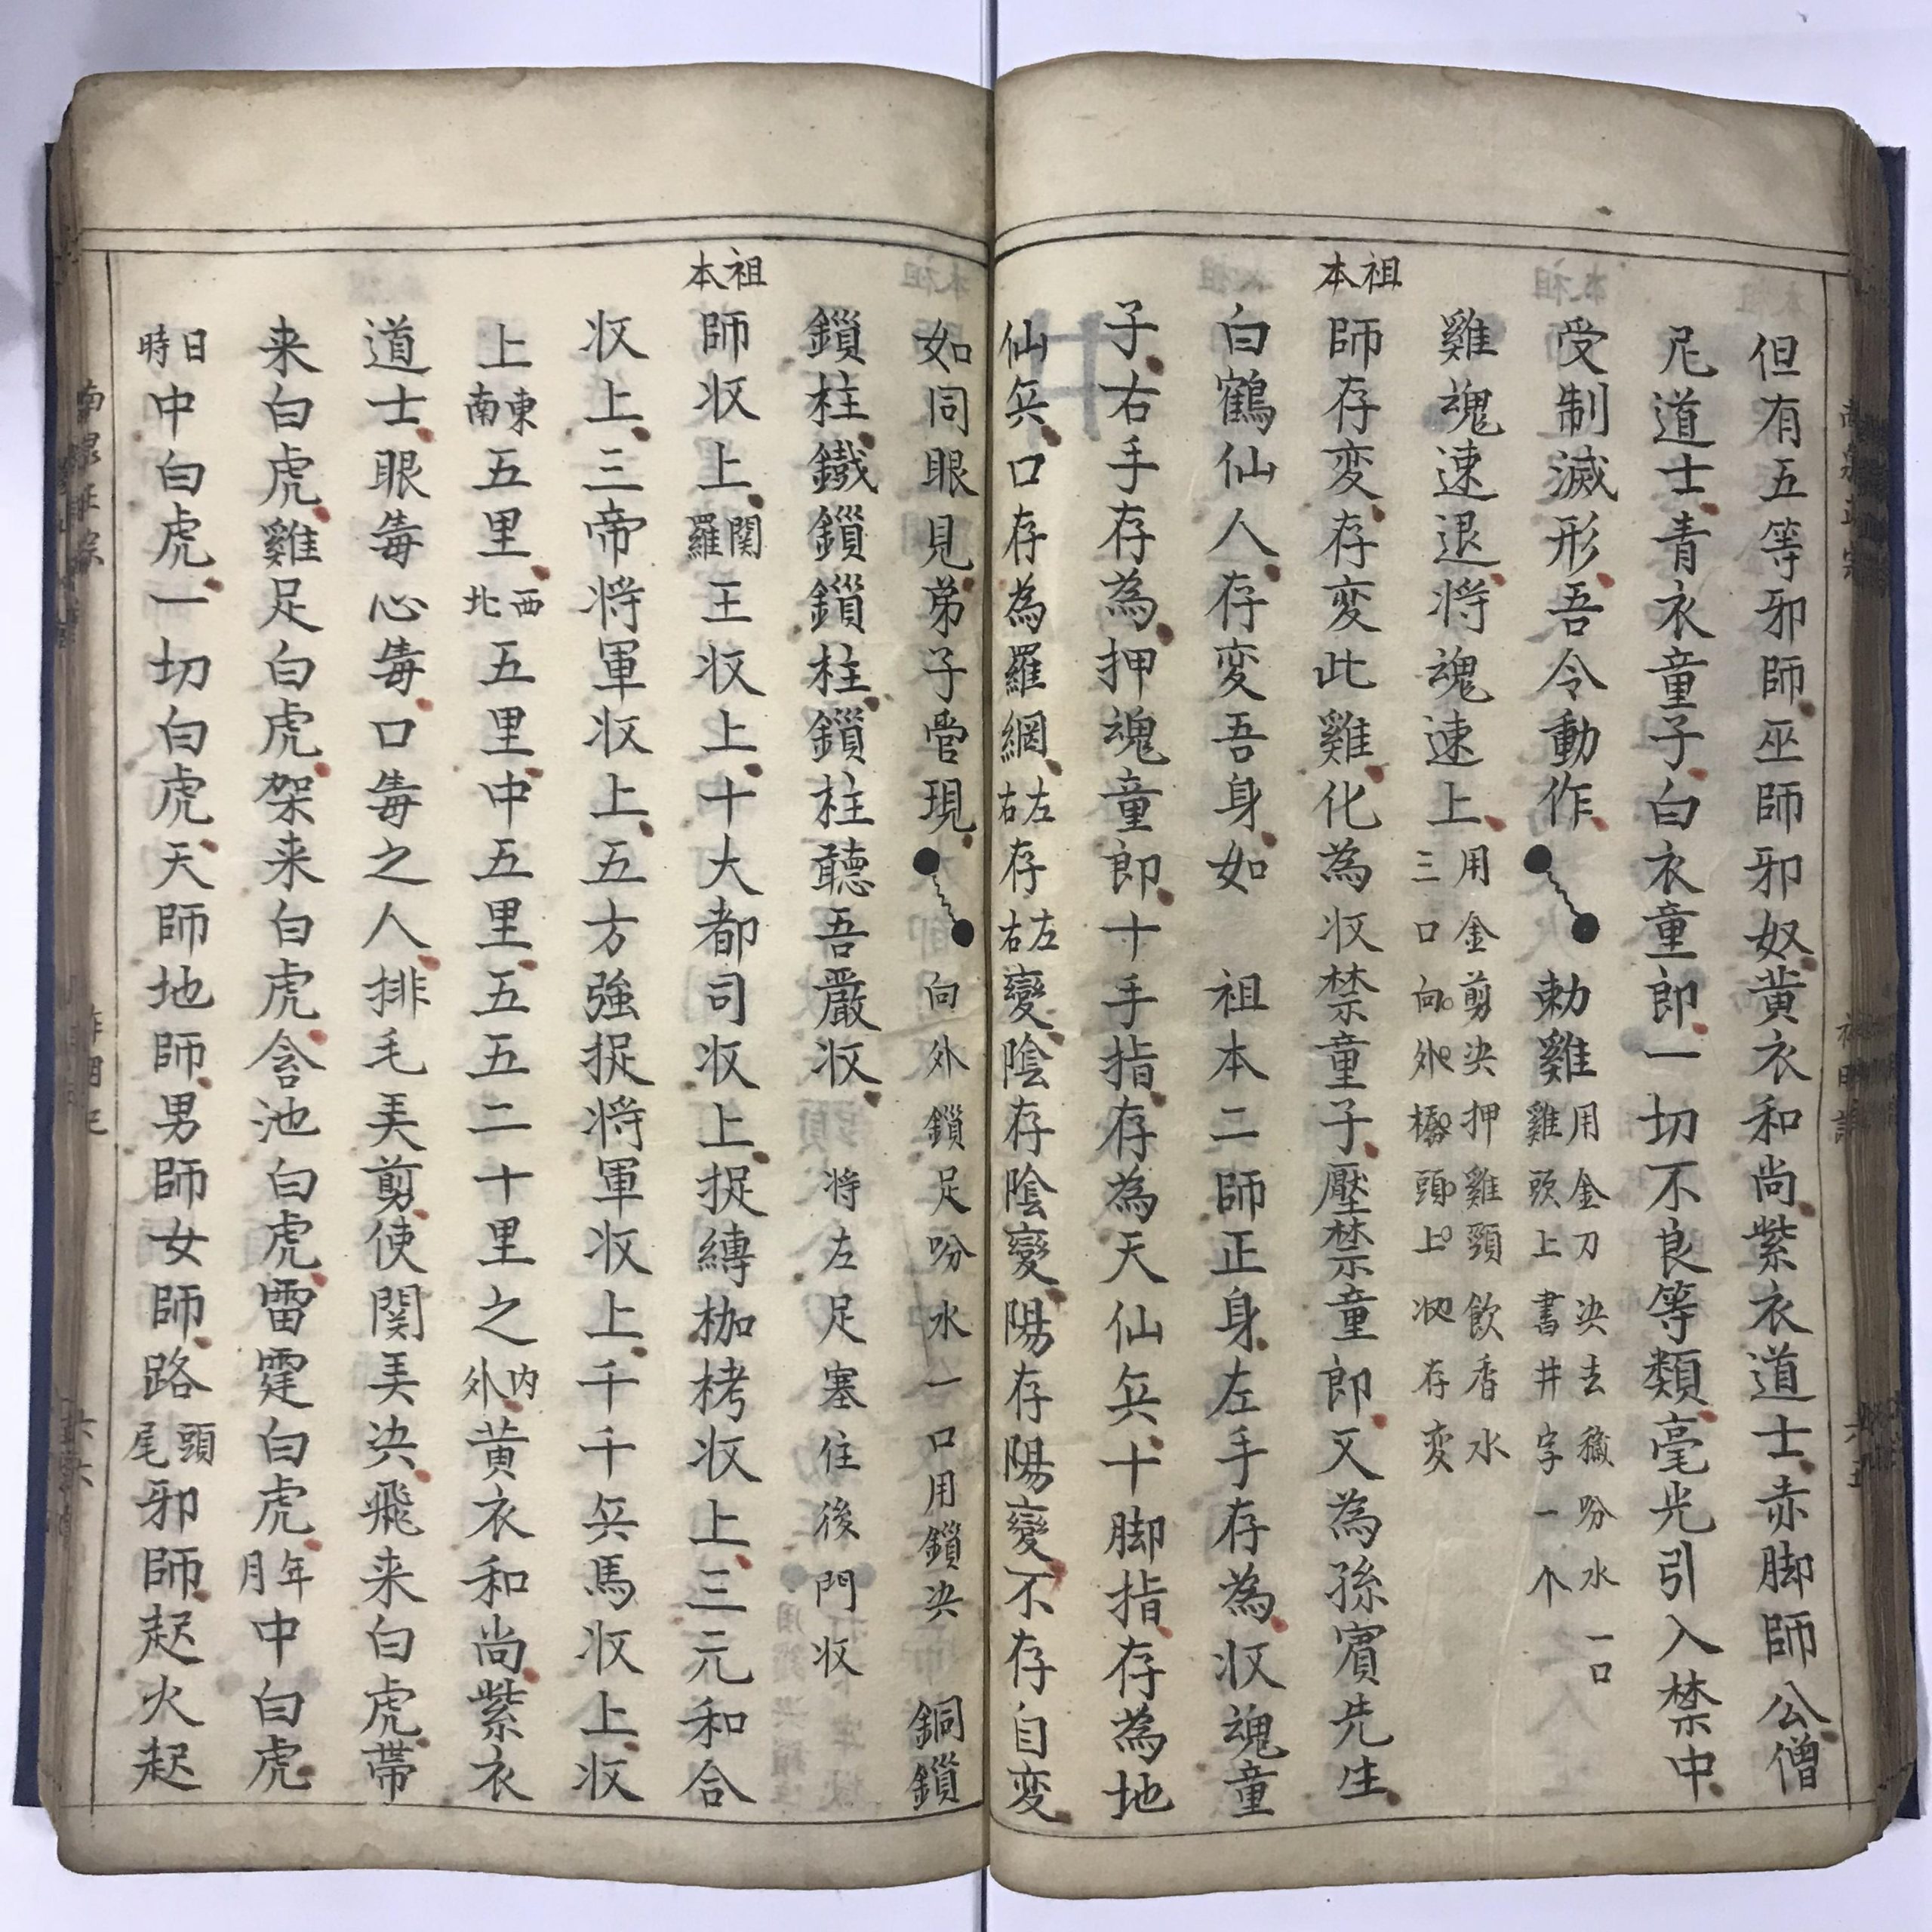 但有五等邪師巫師邪奴黃衣和尚紫衣道士赤脚師公僧
尼道士青衣童子白衣童郎一切不良等類毫光引入禁中
受制滅形吾令動作 勅雞用金刀决去穢吩水一口雞頭上書井字一个
雞魂速退将魂速上用金剪决押雞頸飲香水三口向外頭上收存变
祖本師存变存变此雞化為收禁童子壓禁童郎又為孫賓先生
白鶴仙人存变吾身如 祖本二師正身左手存為收魂童
子右手存為押魂童郎十手指存為天仙兵十脚指存為地
仙兵口存為羅網左右存左右變陰存陰變陽存陽變不存自变
如同眼見弟子曺現 向外鎖足吩水一口用鎖决 銅鎖
鎖柱鐵鎖鎖柱鎖柱聽吾嚴收 将左足塞住後門收
祖本師收上関羅王收上十大都司收上捉縛枷栲收上三元和合
收上三帝将軍收上五方強捉将軍收上千千兵馬收上收
上東南五里西北五里中五里五五二十里之内外黃衣和尚紫衣
道士眼毒心毒口毒之人排毛美剪使関美决飛来白虎帶
来白虎雞足白虎架来白虎含池白虎雷霆白虎年月中白虎
日時中白虎一切白虎天師地師男師女師路頭尾邪師起火起